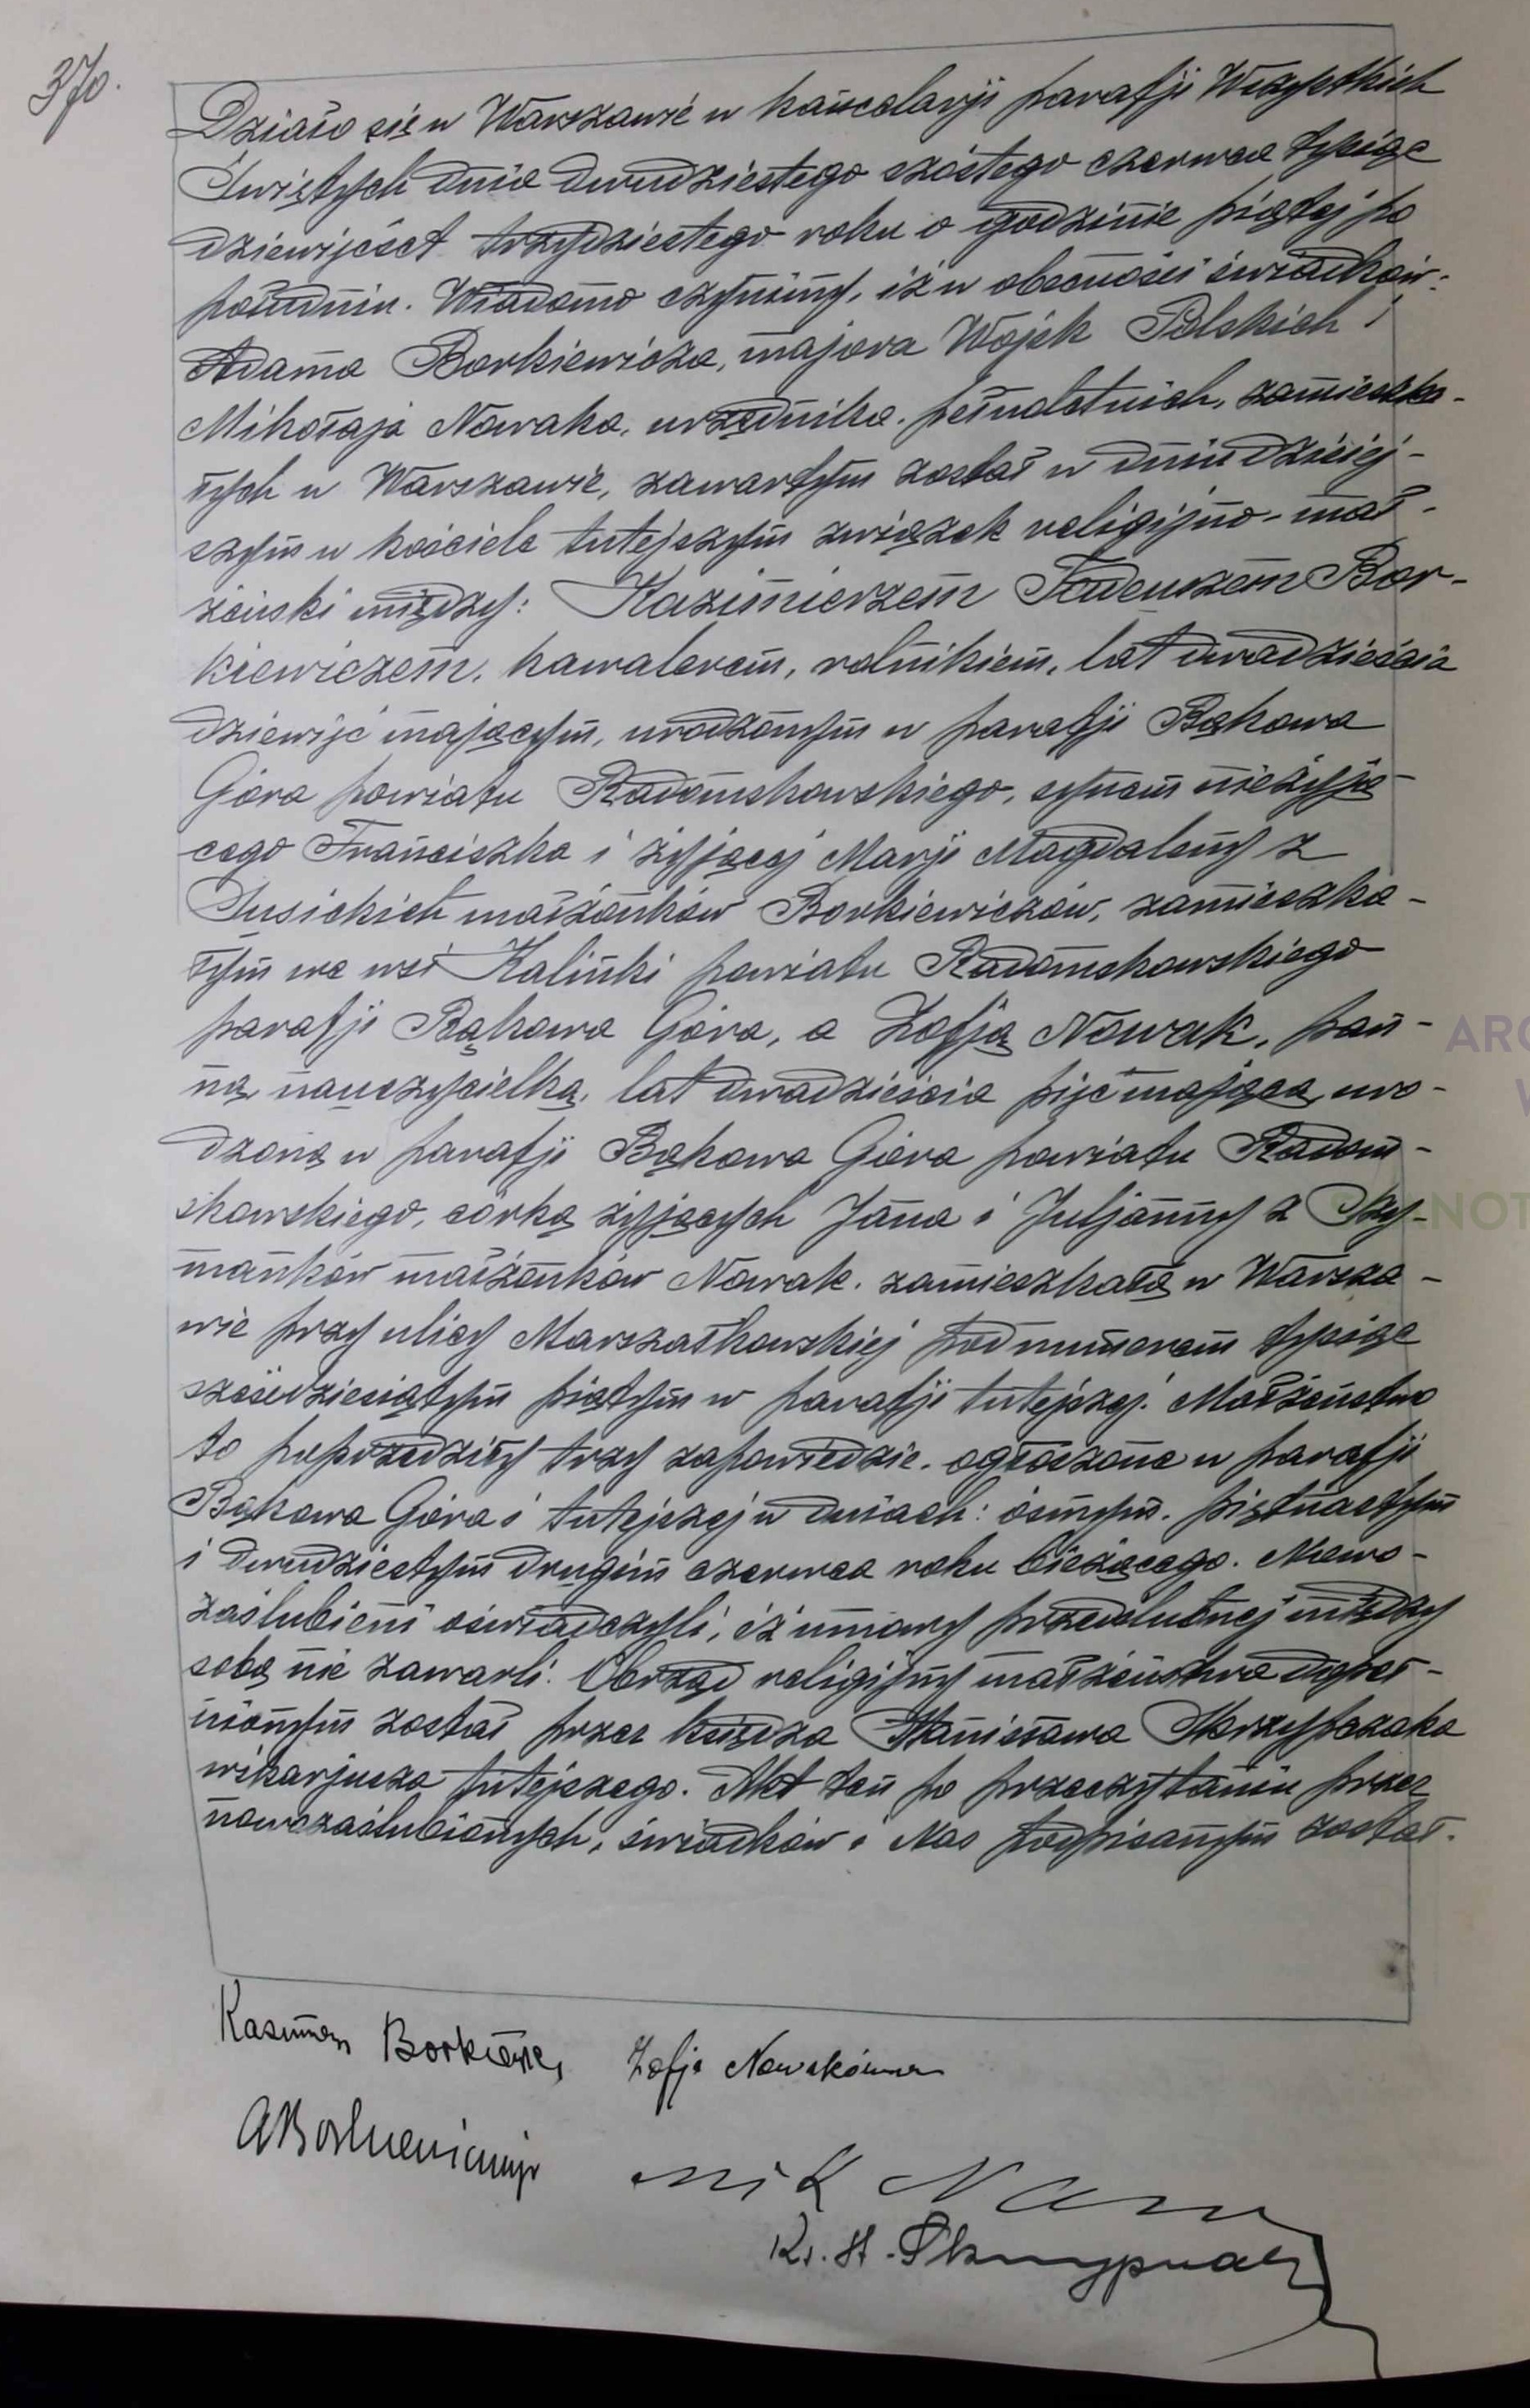 370.
Działo się w Warszawie w kancelarji parafji Wszystkich
Świętych dnia dwudziestego szóstego czerwca tysiąc
dziewięćset trzydziestego roku o godzinie piątej po
południu. Wiadomo czynimy, iż w obecności świadków:
Adama Borkiewicza, majora Wojsk Polskich i
Mikołaja Nowaka, urzędnika, pełnoletnich, zamieszka-
łych w Warszawie, zawartym został w dniu dzisiej-
szym w kościele tutejszym związek religijno-mał-
żeński między: Kazimierzem Tadeuszem Bor-
kiewiczem, kawalerem, rolnikiem, lat dwadzieścia
dziewięć mającym, urodzonym w parafji Bąkowa
Góra powiatu Radomskowskiego, synem nieżyją-
cego Franciszka i żyjącej Marji Magdaleny z
Susickich małżonków Borkiewiczów, zamieszka-
łym we wsi Kalinki powiatu Radomskowskiego
parafji Bąkowa Góra, a Zofją Nowak, pan-
ną, nauczycielką, lat dwadzieścia pięć mającą, uro-
dzoną w parafji Bąkowa Góra powiatu Radom-
skowskiego, córką żyjących Jana i Juljanny z Szy-
mańków małżonków Nowak, zamieszkałą w Warsza-
wie przy ulicy Marszałkowskiej pod numerem tysiąc
sześćdziesiątym piątym w parafji tutejszej. Małżeństwo
to poprzedziły trzy zapowiedzie, ogłoszone w parafji
Bąkowa Góra i tutejszej w dniach: ósmym, piętnastym
i dwudziestym drugim czerwca roku bieżącego. Nowo-
zaślubieni oświadczyli, iż umowy przedślubnej między
sobą nie zawarli. Obrzęd religijny małżeństwa dopeł-
nionym został przez księdza Stanisława Skrzypczaka
wikarjusza tutejszego. Akt ten po przeczytaniu przez
nowozaślubionych, świadków i Nas podpisanym został.
Kazimierz Borkiewicz Zofja Nowakówna
ABorkiewicz mjr
Mik Nowak
Ks. St. Skrzypczak
ARC
W
NOT